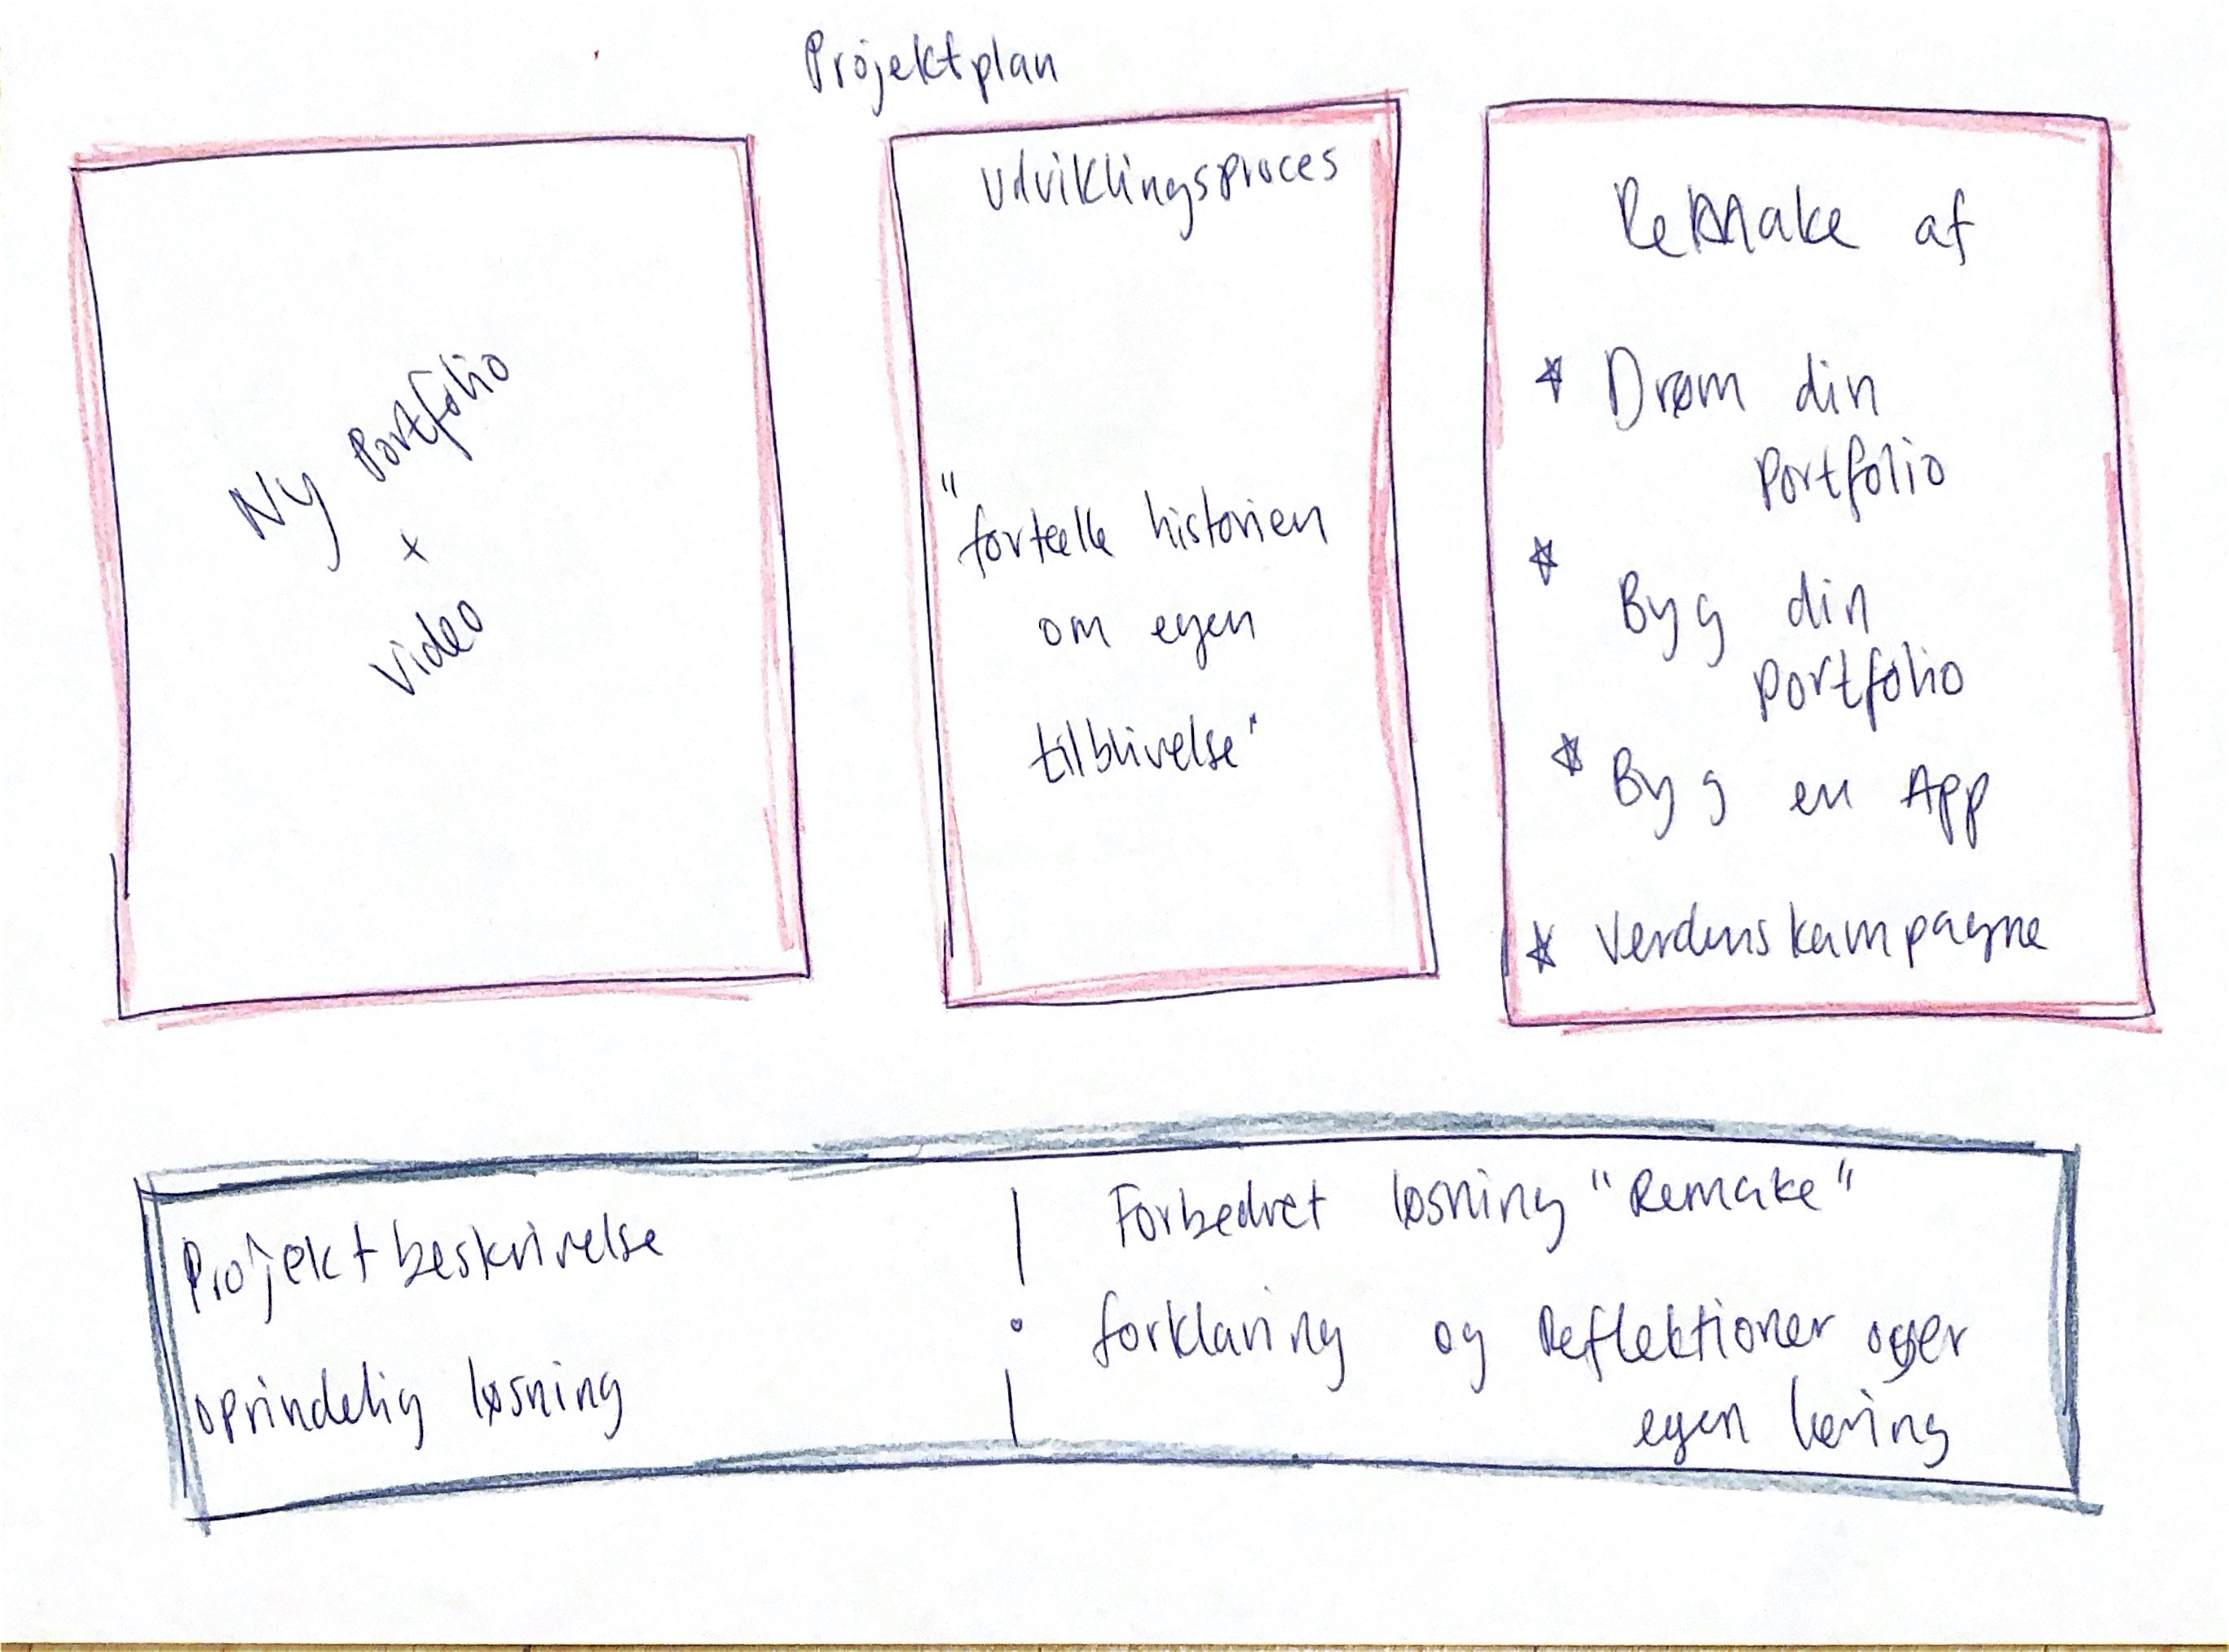 Projektplan
Ny Portfolio
+
Video
Udviklingsproces
"fortælle historien
om egen
tilblivelse"
ReMake af
* Drøm din
Portfolio
* Byg din
Portfolio
* Byg en App
* Verdenskampagne
Projektbeskrivelse
oprindelig løsning
Forbedret løsning "Remake"
forklaring og Reflektioner over
egen læring